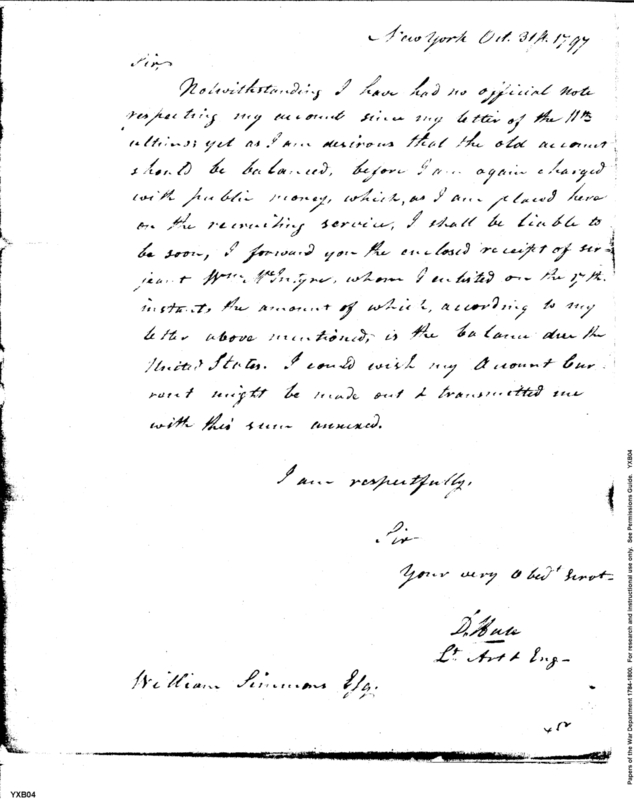 New York Oct. 31st. 1797
Sir,
Notwithstanding I have had no official note
respecting my account since my letter of the 11th
ultimo; yet as I am desirous that the old account
should be balanced, before I am again charged
with public money, which, as I am placed here
on the recruiting service, I shall be liable to
be soon, I forward you the enclosed receipt of ser-
jeant Wm. McIntyre, whom I enlisted on the 7th.
instant, the amount of which, according to my
letter above mentioned, is the balance due the
United States. I could wish my Account Cur-
rent might be made out & transmitted me
with this sum annexed.
I am respectfully,
Sir
Your very Obedt. servt-
Lt. Art & Eng-
William Simmons Esq.
YXB04
Papers of the War Department 1784-1800. For research and instructional use only. See Permissions Guide. YXB04